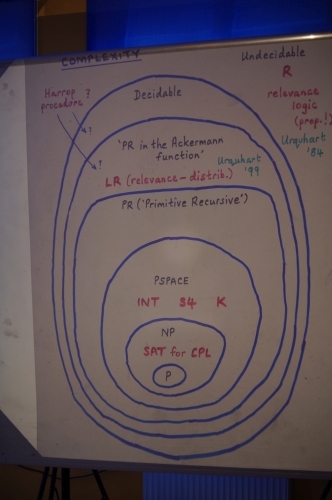 COMPLEXITY
Undecidable
R
relevance
logic
(prop.!)
Urquhart
'84
Harrop ?
procedure
?
?
Decidable
'PR in the Ackermann
function'
Urquhart
'99
LR (relevance - distrib.)
PR ('Primitive Recursive')
PSPACE
INT S4 K
NP
SAT for CPL
P